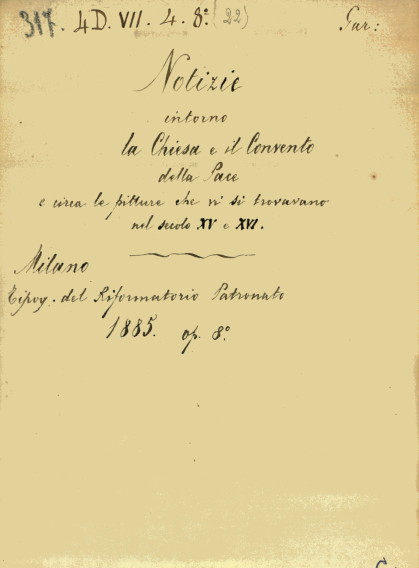 317. 4D. VII. 4. 8.° (22) Gar:
Notizie
intorno
la Chiesa e il Convento
della Pace
e circa le pitture che vi si trovavano
nel secolo XV e XVI.
Milano
Tipog. del Riformatorio Patronato
1885. op. 8°